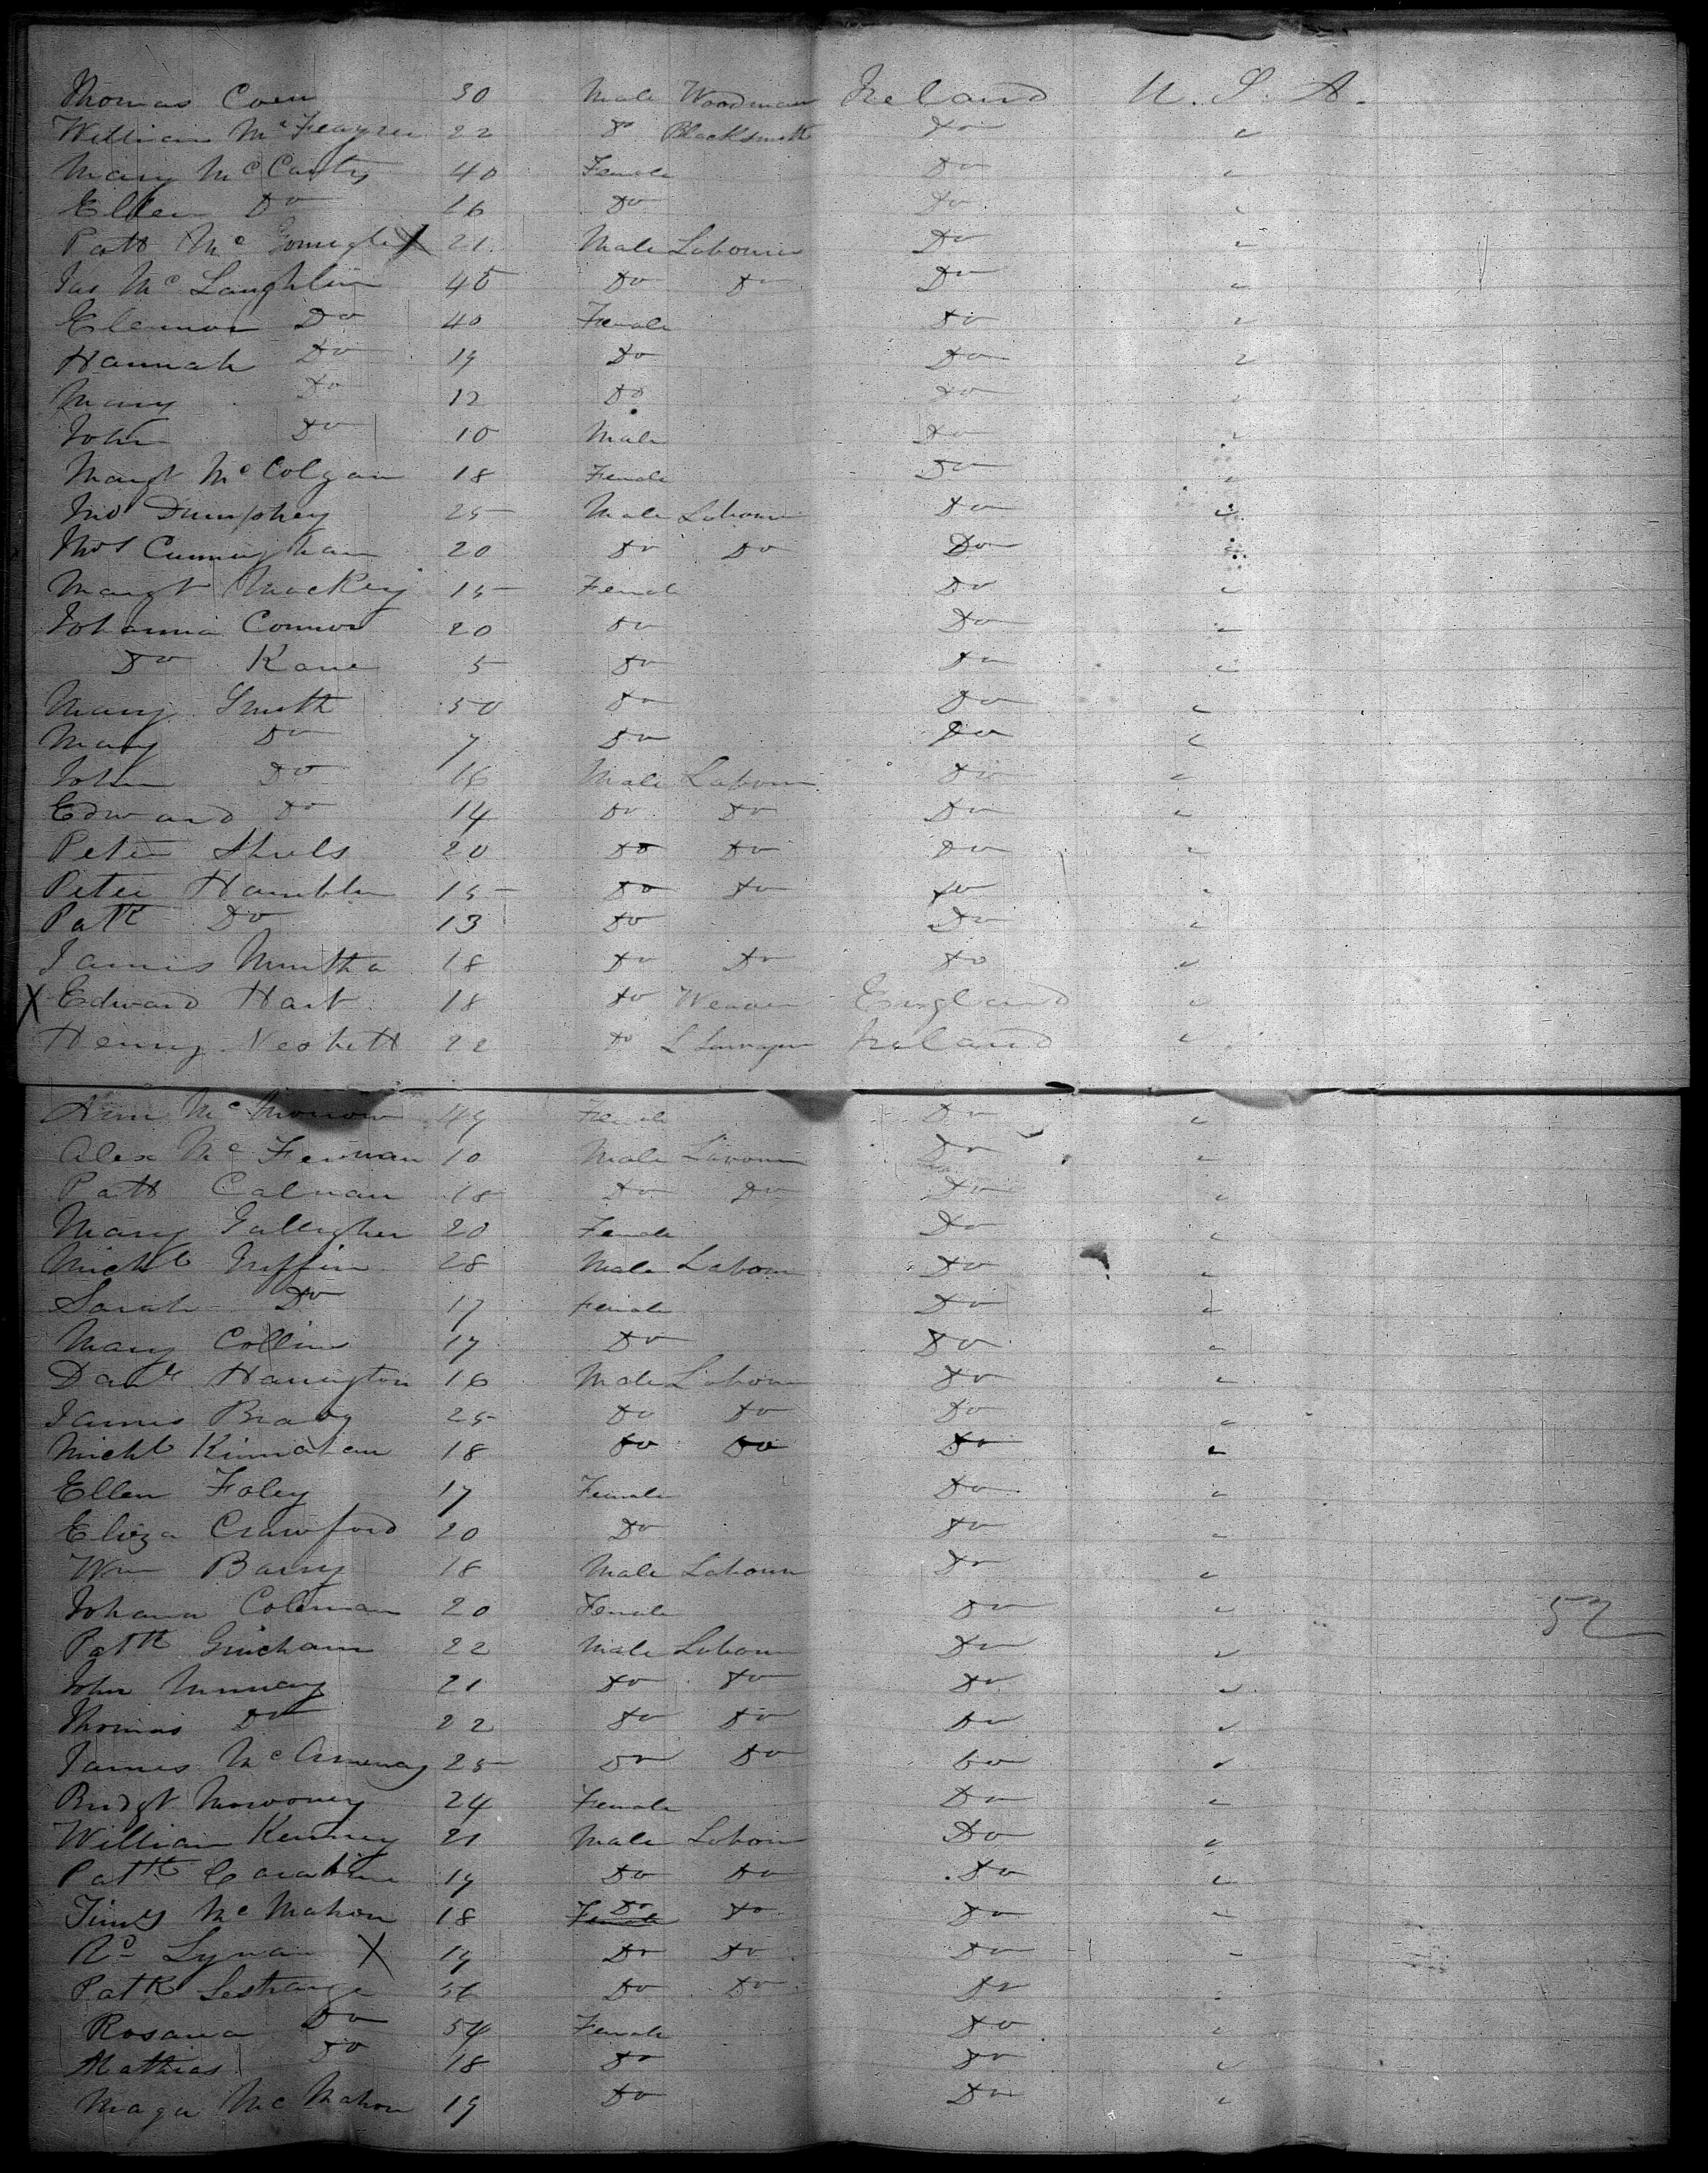 Thomas Coen 30 Male Woodman Ireland U. S. A.
William Mc 22 Do Blacksmith Do "
Mary McCarty 40 Female Do "
Ellen Do 16 Do Do "
Patk McGonigle X 21 Male Labourer Do "
Jas McLaughlin 45 Do Do Do "
Eleanor Do 40 Female Do "
Hannah Do 19 Do Do "
Mary Do 12 Do Do "
John Do 10 Male Do "
Margt McColgan 18 Female Do "
Jno Dumphey 25 Male Labour Do "
Thos Cunningham 20 Do Do Do "
Margt Mackey 15 Female Do "
Johanna Connor 20 Do Do "
Do Kane 5 Do Do "
Mary Smith 50 Do Do "
Mary Do 7 Do Do "
John Do 16 Male Labour Do "
Edward Do 14 Do Do Do "
Peter Shiels 20 Do Do Do "
Peter Hamblin 15 Do Do Do "
Patk Do 13 Do Do "
James Murtha 18 Do Do Do "
X Edward Hart 18 Do Weaver England "
Henry Nesbitt 22 Do Ireland "
Ann McMorrow 49 Female Do "
Alex Mc 10 Male Labour Do "
Patk Calnan 18 Do Do Do "
Mary Gallagher 20 Female Do "
Michl Griffin 28 Male Labour Do "
Sarah Do 17 Female Do "
Mary Collins 17 Do Do "
Danl Harrington 16 Male Labour Do "
James Brady 25 Do Do Do "
Michl Kinnahan 18 Do Do Do "
Ellen Foley 17 Female Do "
Eliza Crawford 20 Do Do "
Wm Barry 18 Male Labour Do "
Johana Coleman 20 Female Do " 52
Patk 22 Male Labour Do "
John Murray 21 Do Do Do "
Thomas Do 22 Do Do Do "
James Mc 25 Do Do Do "
Bridgt 24 Female Do "
William Kenney 21 Male Labour Do "
Patk 19 Do Do Do "
McMahon 18 Female Do Do Do "
Lynam X 19 Do Do Do "
Patk Lestrange 56 Do Do Do "
Rosana Do 54 Female Do "
Mathias Do 18 Do Do "
McMahon 19 Do Do "